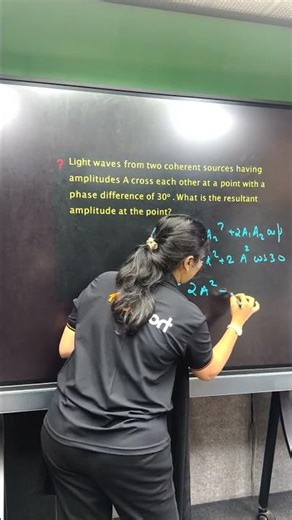 ? Light waves from two coherent sources having
amplitudes A cross each other at a point with a
phase difference of 30º . What is the resultant
amplitude at the point?
A₂² + 2A₁A₂ cos
² + 2 A² cos 30
2A²
ort